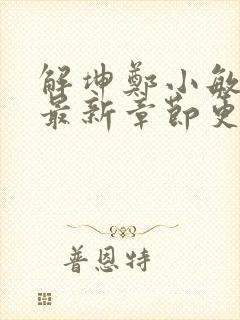 解坤鄭小敏
最新章節更
普恩特